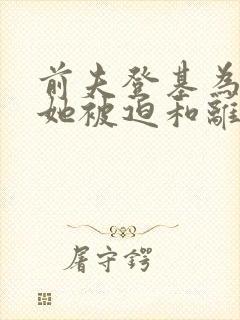 前夫登基為
她被迫和離
屠守鍔